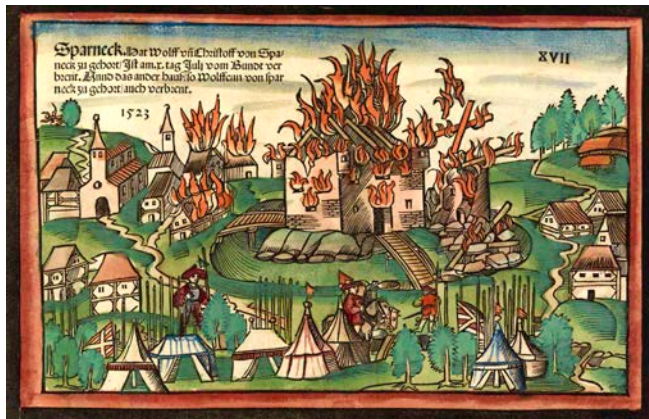 Sparneck. Hat Wolff vñ Christoff von Spa-
neck zu gehort/ Ist am. x. tag Julij vom Bundt ver
brent. Unnd das ander hauß/ so Wolffenn von spar
neck zu gehort/ auch verbrent.
XVII
1523